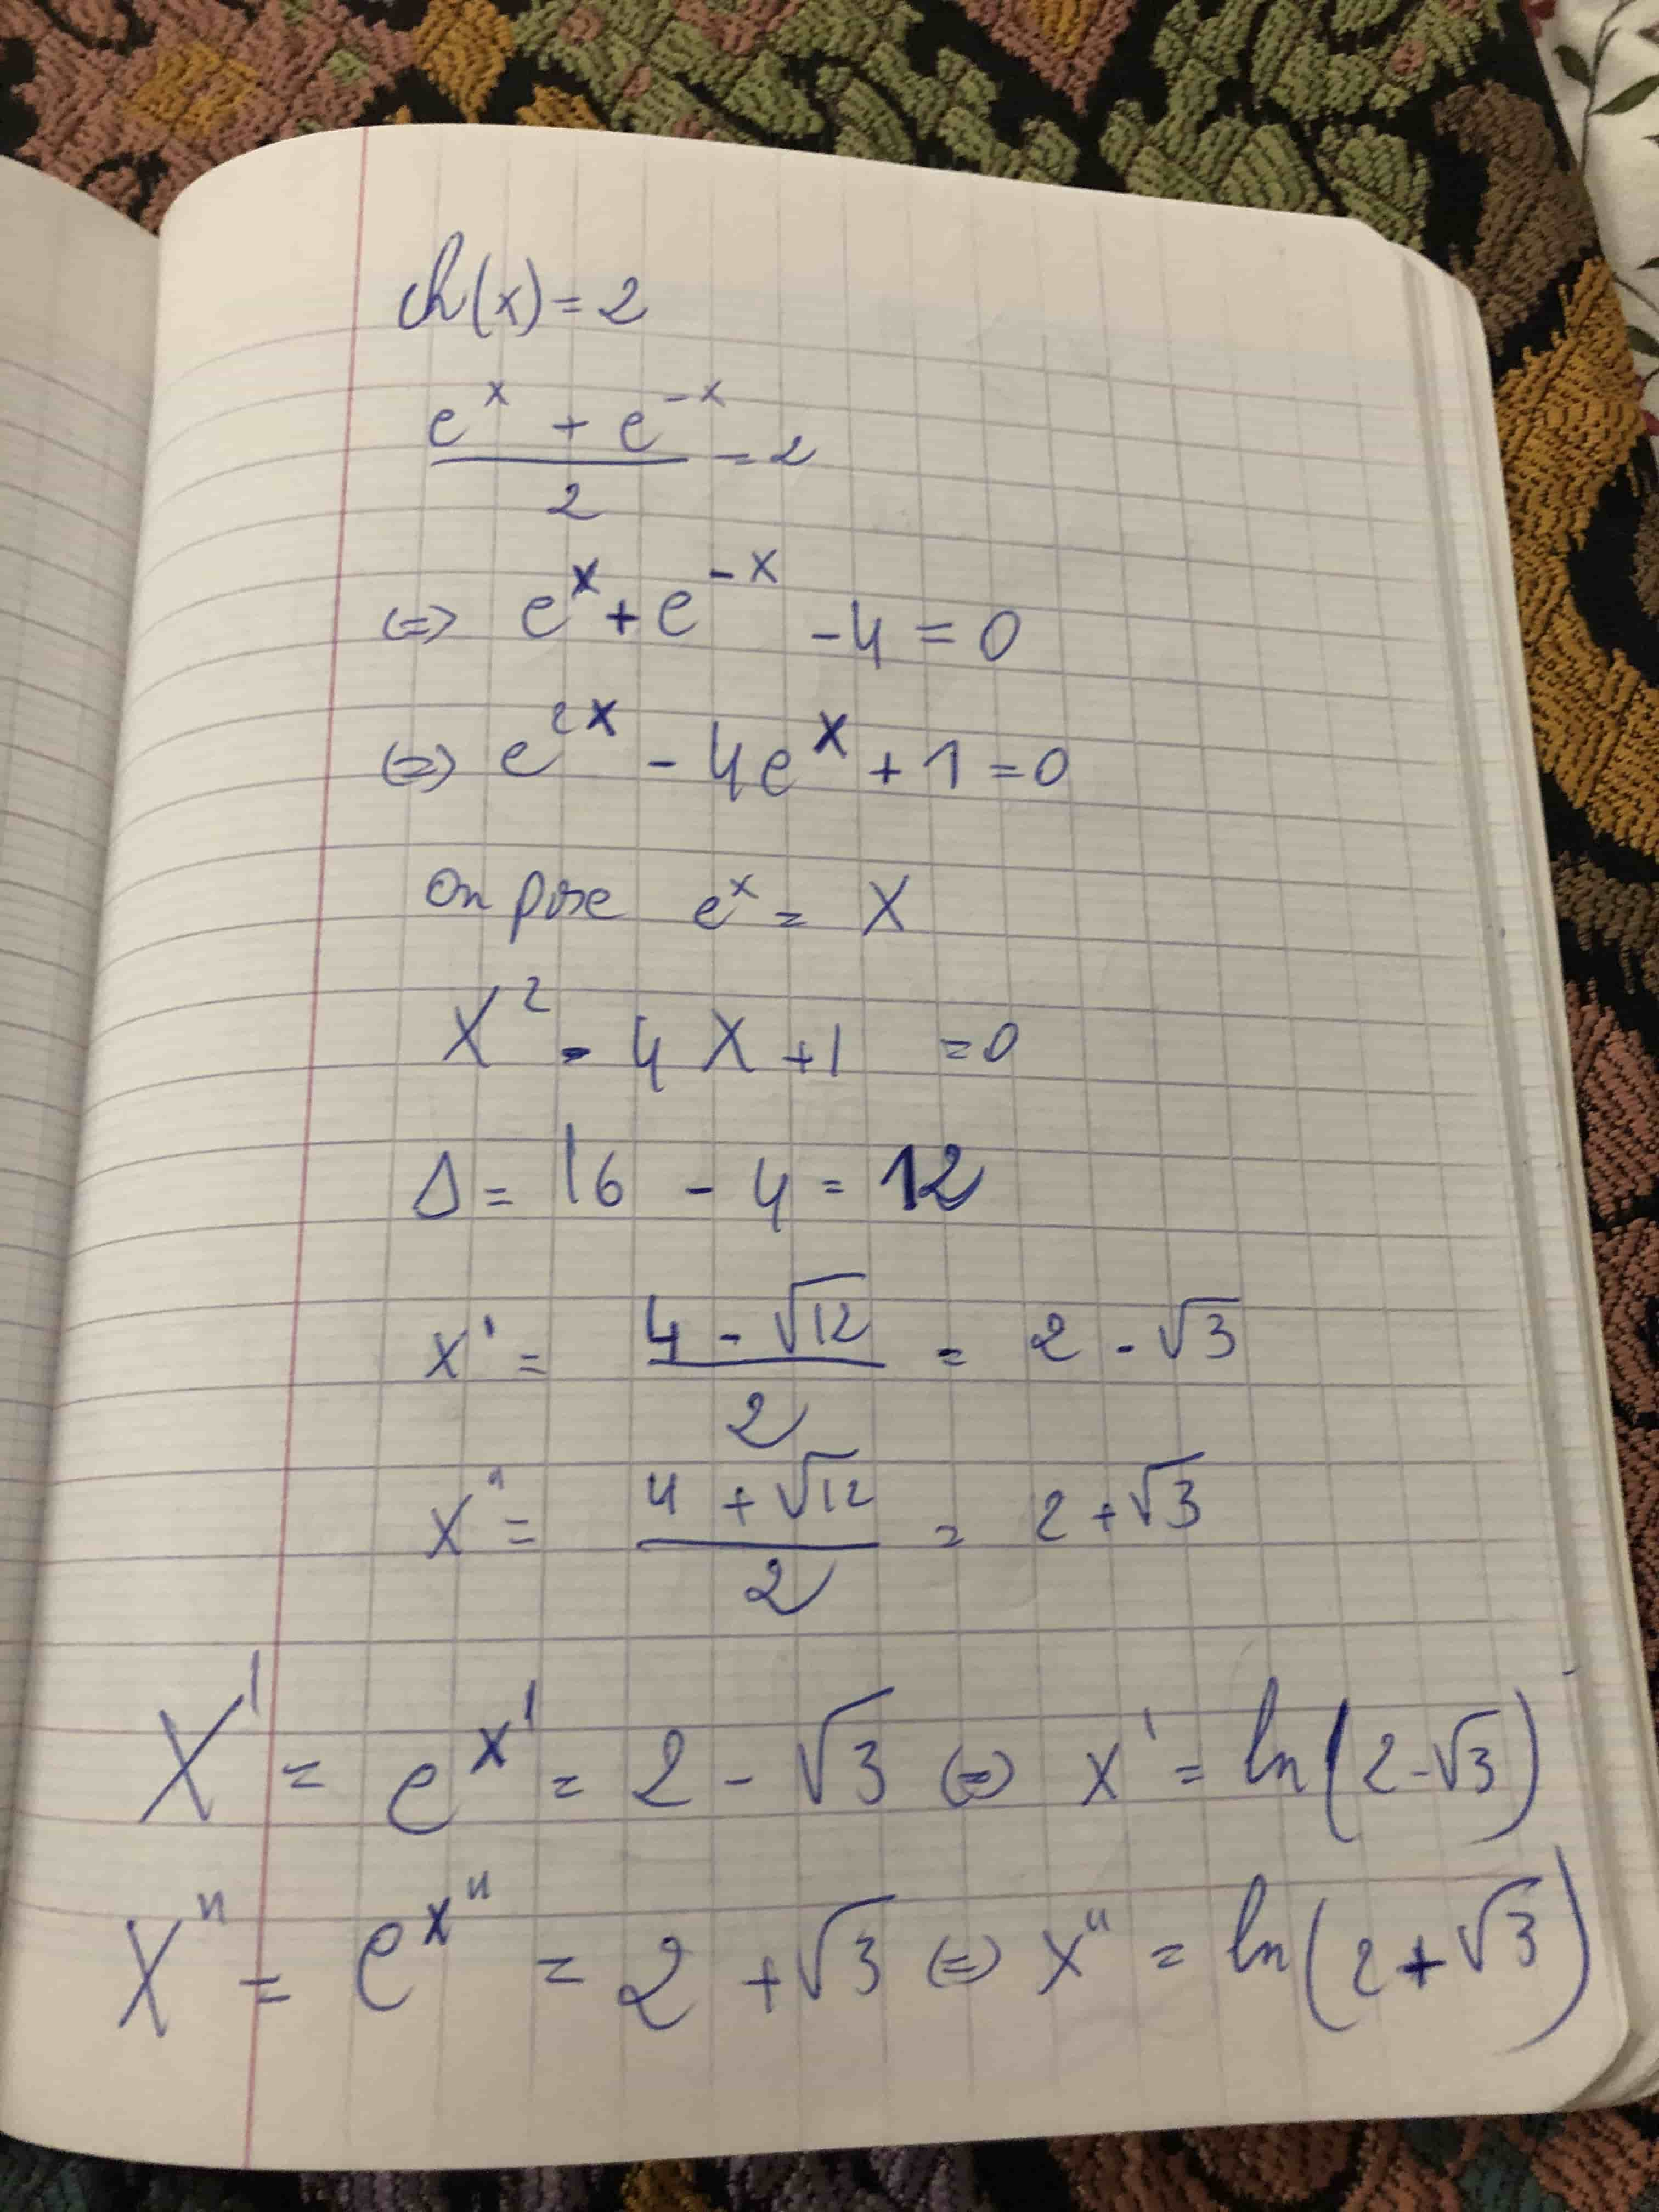 ch(x) = 2
(e^x + e^-x)/2 = 2
<=> e^x + e^-x - 4 = 0
<=> e^2x - 4e^x + 1 = 0
On pose e^x = X
X^2 - 4X + 1 = 0
Δ = 16 - 4 = 12
X' = (4 - √12)/2 = 2 - √3
X" = (4 + √12)/2 = 2 + √3
X' = e^x' = 2 - √3 <=> x' = ln(2 - √3)
X" = e^x" = 2 + √3 <=> x" = ln(2 + √3)